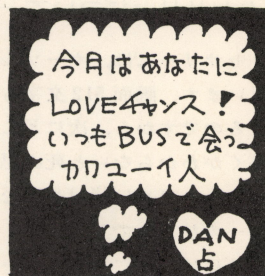 今月はあなたに
LOVEチャンス!
いつもBUSで会う
カワユーイ人
DAN
占